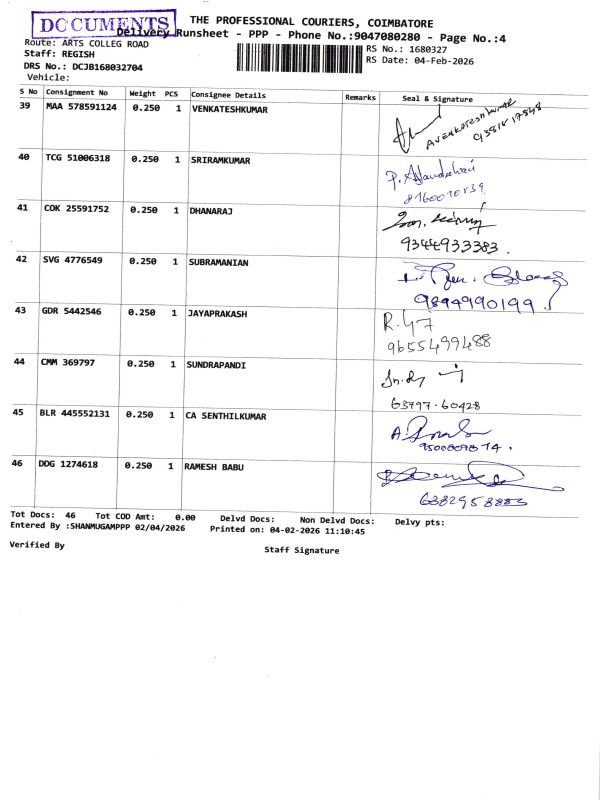 DOCUMENTS
THE PROFESSIONAL COURIERS, COIMBATORE
Delivery Runsheet - PPP - Phone No.:9047080280 - Page No.:4
Route: ARTS COLLEG ROAD
RS No.: 1680327
Staff: REGISH
RS Date: 04-Feb-2026
DRS No.: DCJB168032704
Vehicle:
S No Consignment No Weight PCS Consignee Details Remarks Seal & Signature
39 MAA 578591124 0.250 1 VENKATESHKUMAR
40 TCG 51006318 0.250 1 SRIRAMKUMAR
41 COK 25591752 0.250 1 DHANARAJ
9344933383.
42 SVG 4776549 0.250 1 SUBRAMANIAN
9894990199.
43 GDR 5442546 0.250 1 JAYAPRAKASH
9655499488
44 CMM 369797 0.250 1 SUNDRAPANDI
63797-60428
45 BLR 445552131 0.250 1 CA SENTHILKUMAR
46 DDG 1274618 0.250 1 RAMESH BABU
6382958883
Tot Docs: 46 Tot COD Amt: 0.00 Delvd Docs: Non Delvd Docs: Delvy pts:
Entered By :SHANMUGAMPPP 02/04/2026 Printed on: 04-02-2026 11:10:45
Verified By Staff Signature